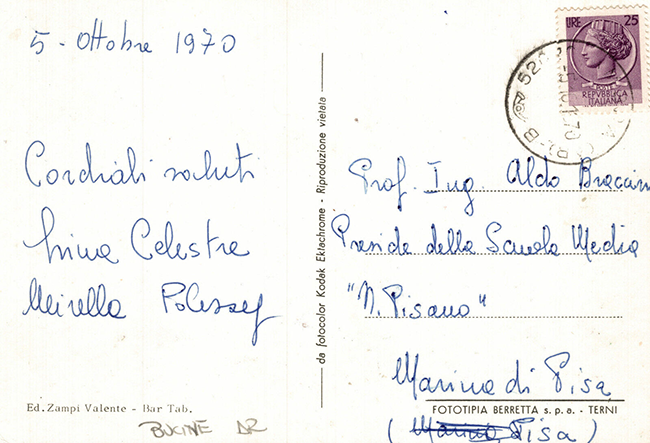 5 - Ottobre 1970
Cordiali saluti
Celestre
Mirella
Ed. Zampi Valente - Bar Tab.
BUCINE AR
da fotocolor Kodak Ektachrome - Riproduzione vietata
LIRE 25
POSTE
REPVBBLICA
ITALIANA
Prof. Ing. Aldo
Preside della Scuola Media
"N. Pisano"
Marina di Pisa
FOTOTIPIA BERRETTA s.p.a. - TERNI
( Pisa )